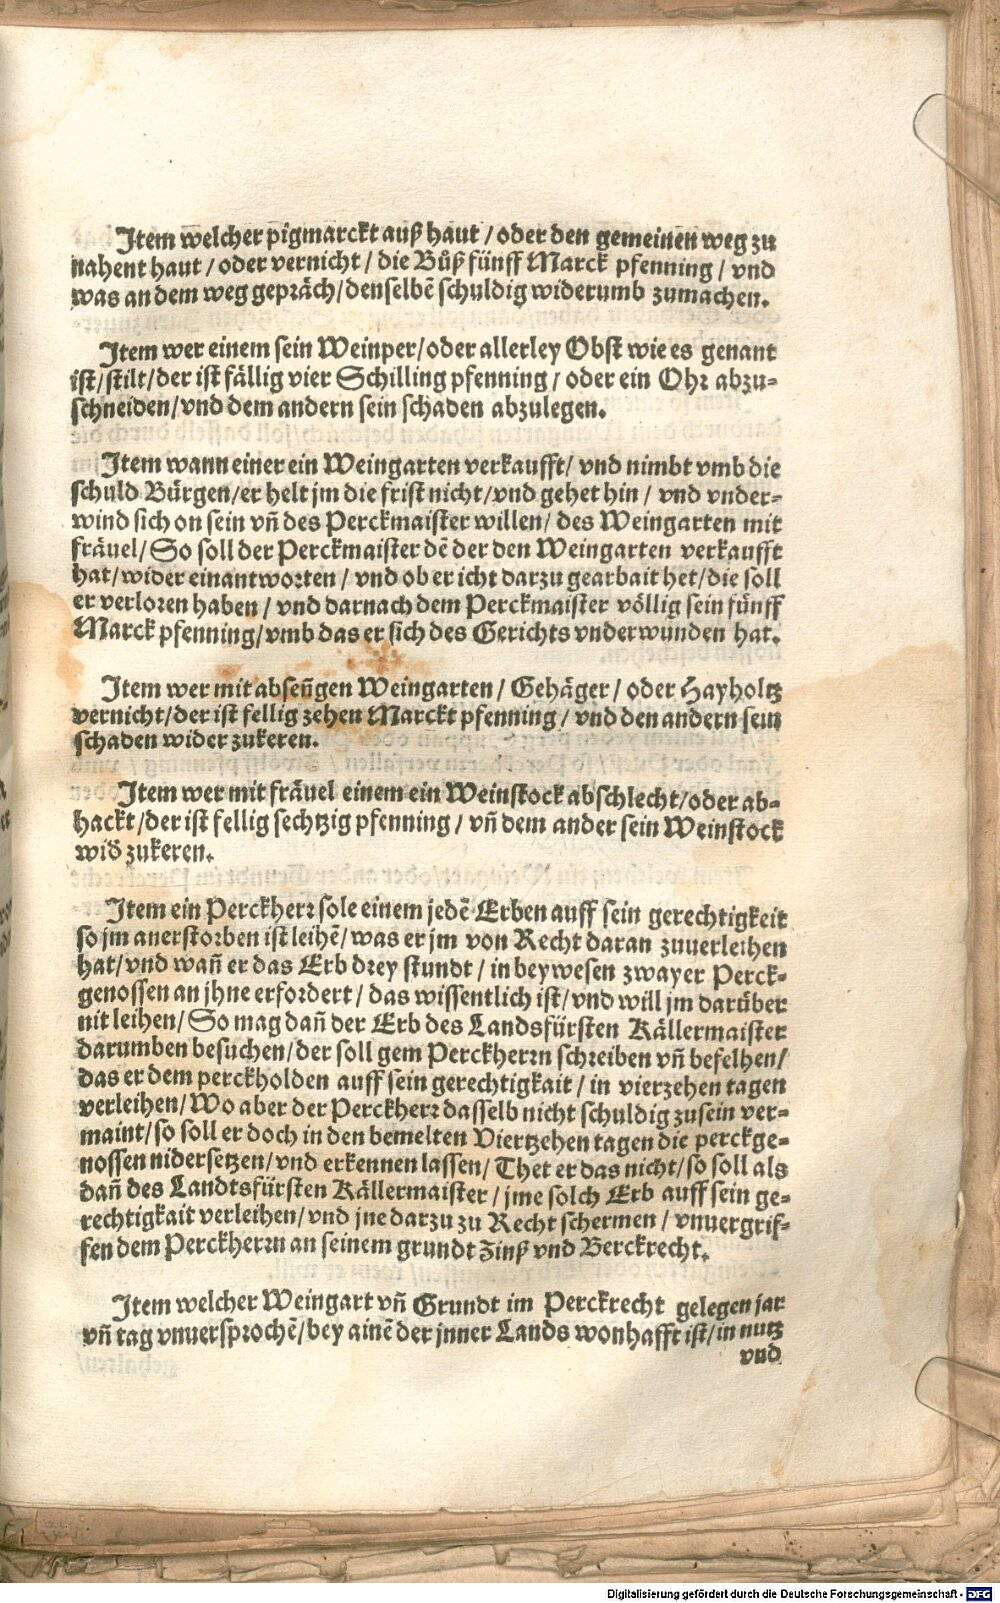 Item welcher pigmarckt auß haut / oder den gemeinen weg zu
nahent haut / oder vernicht / die Bůß fünff Marck pfenning / vnd
was an dem weg gepräch / denselbē schuldig widerumb zumachen.
Item wer einem sein Weinper / oder allerley Obst wie es genant
ist / stilt / der ist fällig vier Schilling pfenning / oder ein Ohr abzu-
schneiden / vnd dem andern sein schaden abzulegen.
Item wann einer ein Weingarten verkaufft / vnd nimbt vmb die
schuld Bürgen / er helt jm die frist nicht / vnd gehet hin / vnd vnder-
wind sich on sein vñ des Perckmaister willen / des Weingarten mit
fräuel / So soll der Perckmaister dē der den Weingarten verkaufft
hat / wider einantworten / vnd ob er icht darzu gearbait het / die soll
er verloren haben / vnd darnach dem Perckmaister völlig sein fünff
Marck pfenning / vmb das er sich des Gerichts vnderwunden hat.
Item wer mit abseñgen Weingarten / Gehäger / oder Hayholtz
vernicht / der ist fellig zehen Marckt pfenning / vnd den andern sein
schaden wider zukeren.
Item wer mit fräuel einem ein Weinstock abschlecht / oder ab-
hackt / der ist fellig sechtzig pfenning / vñ dem ander sein Weinstock
wid zukeren.
Item ein Perckherr sole einem jedē Erben auff sein gerechtigkeit
so jm anerstorben ist leihē / was er jm von Recht daran zuuerleihen
hat / vnd wañ er das Erb drey stundt / in beywesen zwayer Perck-
genossen an jhne erfordert / das wissentlich ist / vnd will jm darüber
nit leihen / So mag dañ der Erb des Landsfürsten Källermaister
darumben besuchen / der soll gem Perckherrn schreiben vñ befelhen /
das er dem perckholden auff sein gerechtigkait / in vierzehen tagen
verleihen / Wo aber der Perckherr dasselb nicht schuldig zusein ver-
maint / so soll er doch in den bemelten Viertzehen tagen die perckge-
nossen nidersetzen / vnd erkennen lassen / Thet er das nicht / so soll als
dañ des Landtsfürsten Källermaister / jme solch Erb auff sein ge-
rechtigkait verleihen / vnd jne darzu zu Recht schermen / vnuergrif-
fen dem Perckherrn an seinem grundt Zinß vnd Berckrecht.
Item welcher Weingart vñ Grundt im Perckrecht gelegen jar
vñ tag vnuersprochē / bey ainē der jnner Lands wonhafft ist / in nutz
vnd
Digitalisierung gefördert durch die Deutsche Forschungsgemeinschaft - DFG